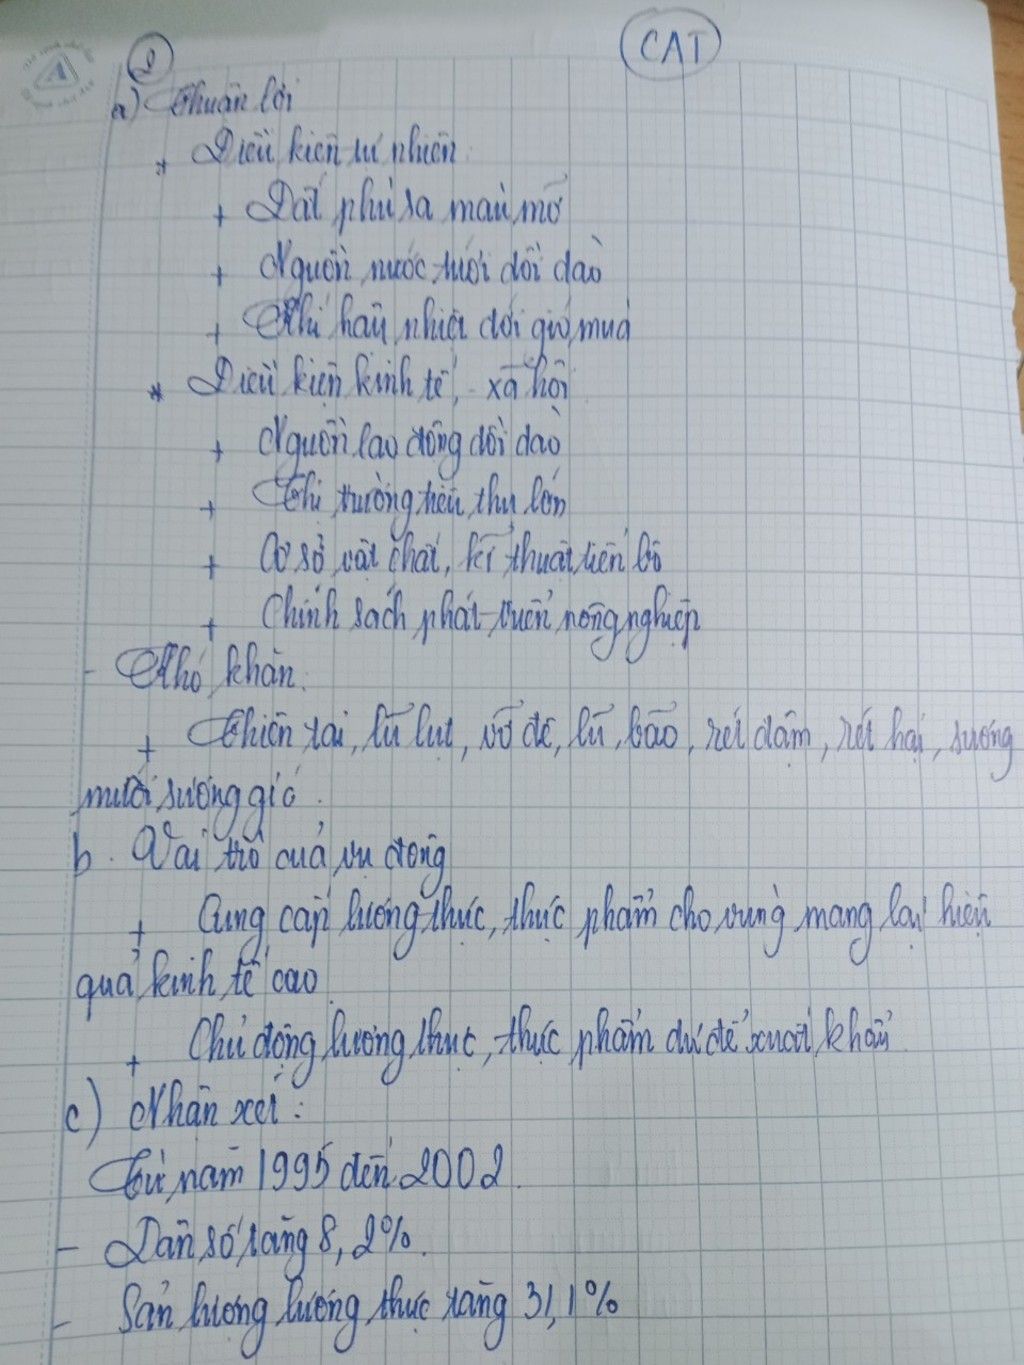 CAT
2
a) Thuận lợi
* Điều kiện tự nhiên
+ Đất phù sa màu mỡ
+ Nguồn nước tưới dồi dào
+ Khí hậu nhiệt đới gió mùa
* Điều kiện kinh tế, - xã hội
+ Nguồn lao động dồi dào
+ Thị trường tiêu thụ lớn
+ Cơ sở vật chất, kĩ thuật tiến bộ
+ Chính sách phát triển nông nghiệp
- Khó khăn.
+ Thiên tai, lũ lụt, vỡ đê, lũ, bão, rét đậm, rét hại, sương
muối sương gió.
b. Vai trò của vụ đông
+ Cung cấp lương thực, thực phẩm cho vùng mang lại hiệu
quả kinh tế cao.
+ Chủ động lương thực, thực phẩm dư để xuất khẩu
c) Nhận xét:
Từ năm 1995 đến 2002.
- Dân số tăng 8,2%.
- Sản lượng lương thực tăng 31,1%